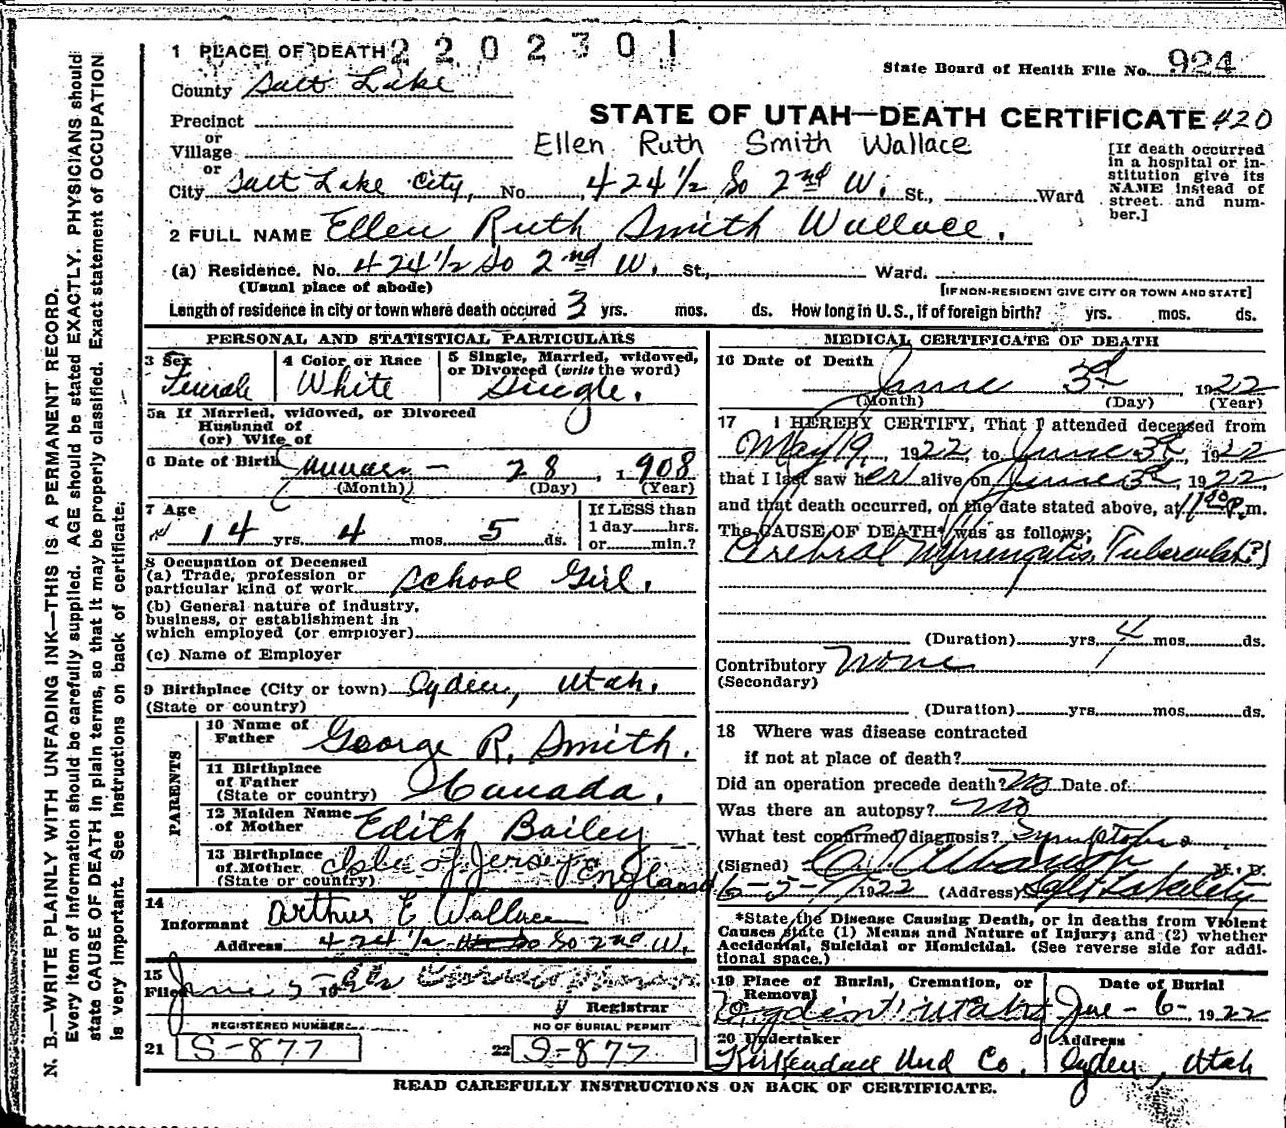 1 PLACE OF DEATH 2 2 0 2 3 0 1
State Board of Health File No. 924
County Salt Lake
STATE OF UTAH—DEATH CERTIFICATE 420
Precinct
or
Village
Ellen Ruth Smith Wallace
or
City Salt Lake City, No. 424 1/2 So 2nd W. St., Ward
[If death occurred in a hospital or institution give its NAME instead of street and number.]
2 FULL NAME Ellen Ruth Smith Wallace.
(a) Residence. No. 424 1/2 So 2nd W. St., Ward.
(Usual place of abode) [IF NON-RESIDENT GIVE CITY OR TOWN AND STATE]
Length of residence in city or town where death occured 3 yrs. mos. ds. How long in U.S., if of foreign birth? yrs. mos. ds.
PERSONAL AND STATISTICAL PARTICULARS
3 Sex Female
4 Color or Race White
5 Single, Married, widowed, or Divorced (write the word) Single.
5a If Married, widowed, or Divorced
Husband of
(or) Wife of
6 Date of Birth 28 1908
(Month) (Day) (Year)
7 Age 14 yrs. 4 mos. 5 ds.
If LESS than
1 day hrs.
or min.?
8 Occupation of Deceased
(a) Trade, profession or
particular kind of work School Girl.
(b) General nature of Industry,
business, or establishment in
which employed (or employer)
(c) Name of Employer
9 Birthplace (City or town) Ogden, Utah.
(State or country)
PARENTS
10 Name of Father George R. Smith.
11 Birthplace of Father (State or country) Canada.
12 Maiden Name of Mother Edith Bailey
13 Birthplace of Mother (State or country) Isle of Jersey England
14
Informant Arthur E Wallace
Address 424 1/2 So 2nd W.
15
Filed June 5 19
Registrar
REGISTERED NUMBER
21 S-877
NO OF BURIAL PERMIT
22 S-877
MEDICAL CERTIFICATE OF DEATH
16 Date of Death June 3d, 1922
(Month) (Day) (Year)
17 I HEREBY CERTIFY, That I attended deceased from
May 19, 1922, to June 3d, 1922
that I last saw her alive on June 3d, 1922,
and that death occurred, on the date stated above, at 11 p.m.
The CAUSE OF DEATH* was as follows:
Cerebral Tubercular(?)
(Duration) yrs. 4 mos. ds.
Contributory None
(Secondary)
(Duration) yrs. mos. ds.
18 Where was disease contracted
if not at place of death?
Did an operation precede death? No Date of:
Was there an autopsy? No
What test confirmed diagnosis? Symptoms
(Signed) M. D.
6-5-1922 (Address)
*State the Disease Causing Death, or in deaths from Violent
Causes state (1) Means and Nature of Injury; and (2) whether
Accidental, Suicidal or Homicidal. (See reverse side for addi-
tional space.)
19 Place of Burial, Cremation, or Removal Ogden Utah
Date of Burial June - 6 -, 1922
20 Undertaker Kirkendall Und Co.
Address Ogden, Utah
READ CAREFULLY INSTRUCTIONS ON BACK OF CERTIFICATE.
N. B.—WRITE PLAINLY WITH UNFADING INK—THIS IS A PERMANENT RECORD.
Every item of information should be carefully supplied. AGE should be stated EXACTLY. PHYSICIANS should
state CAUSE OF DEATH in plain terms, so that it may be properly classified. Exact statement of OCCUPATION
is very important. See instructions on back of certificate.